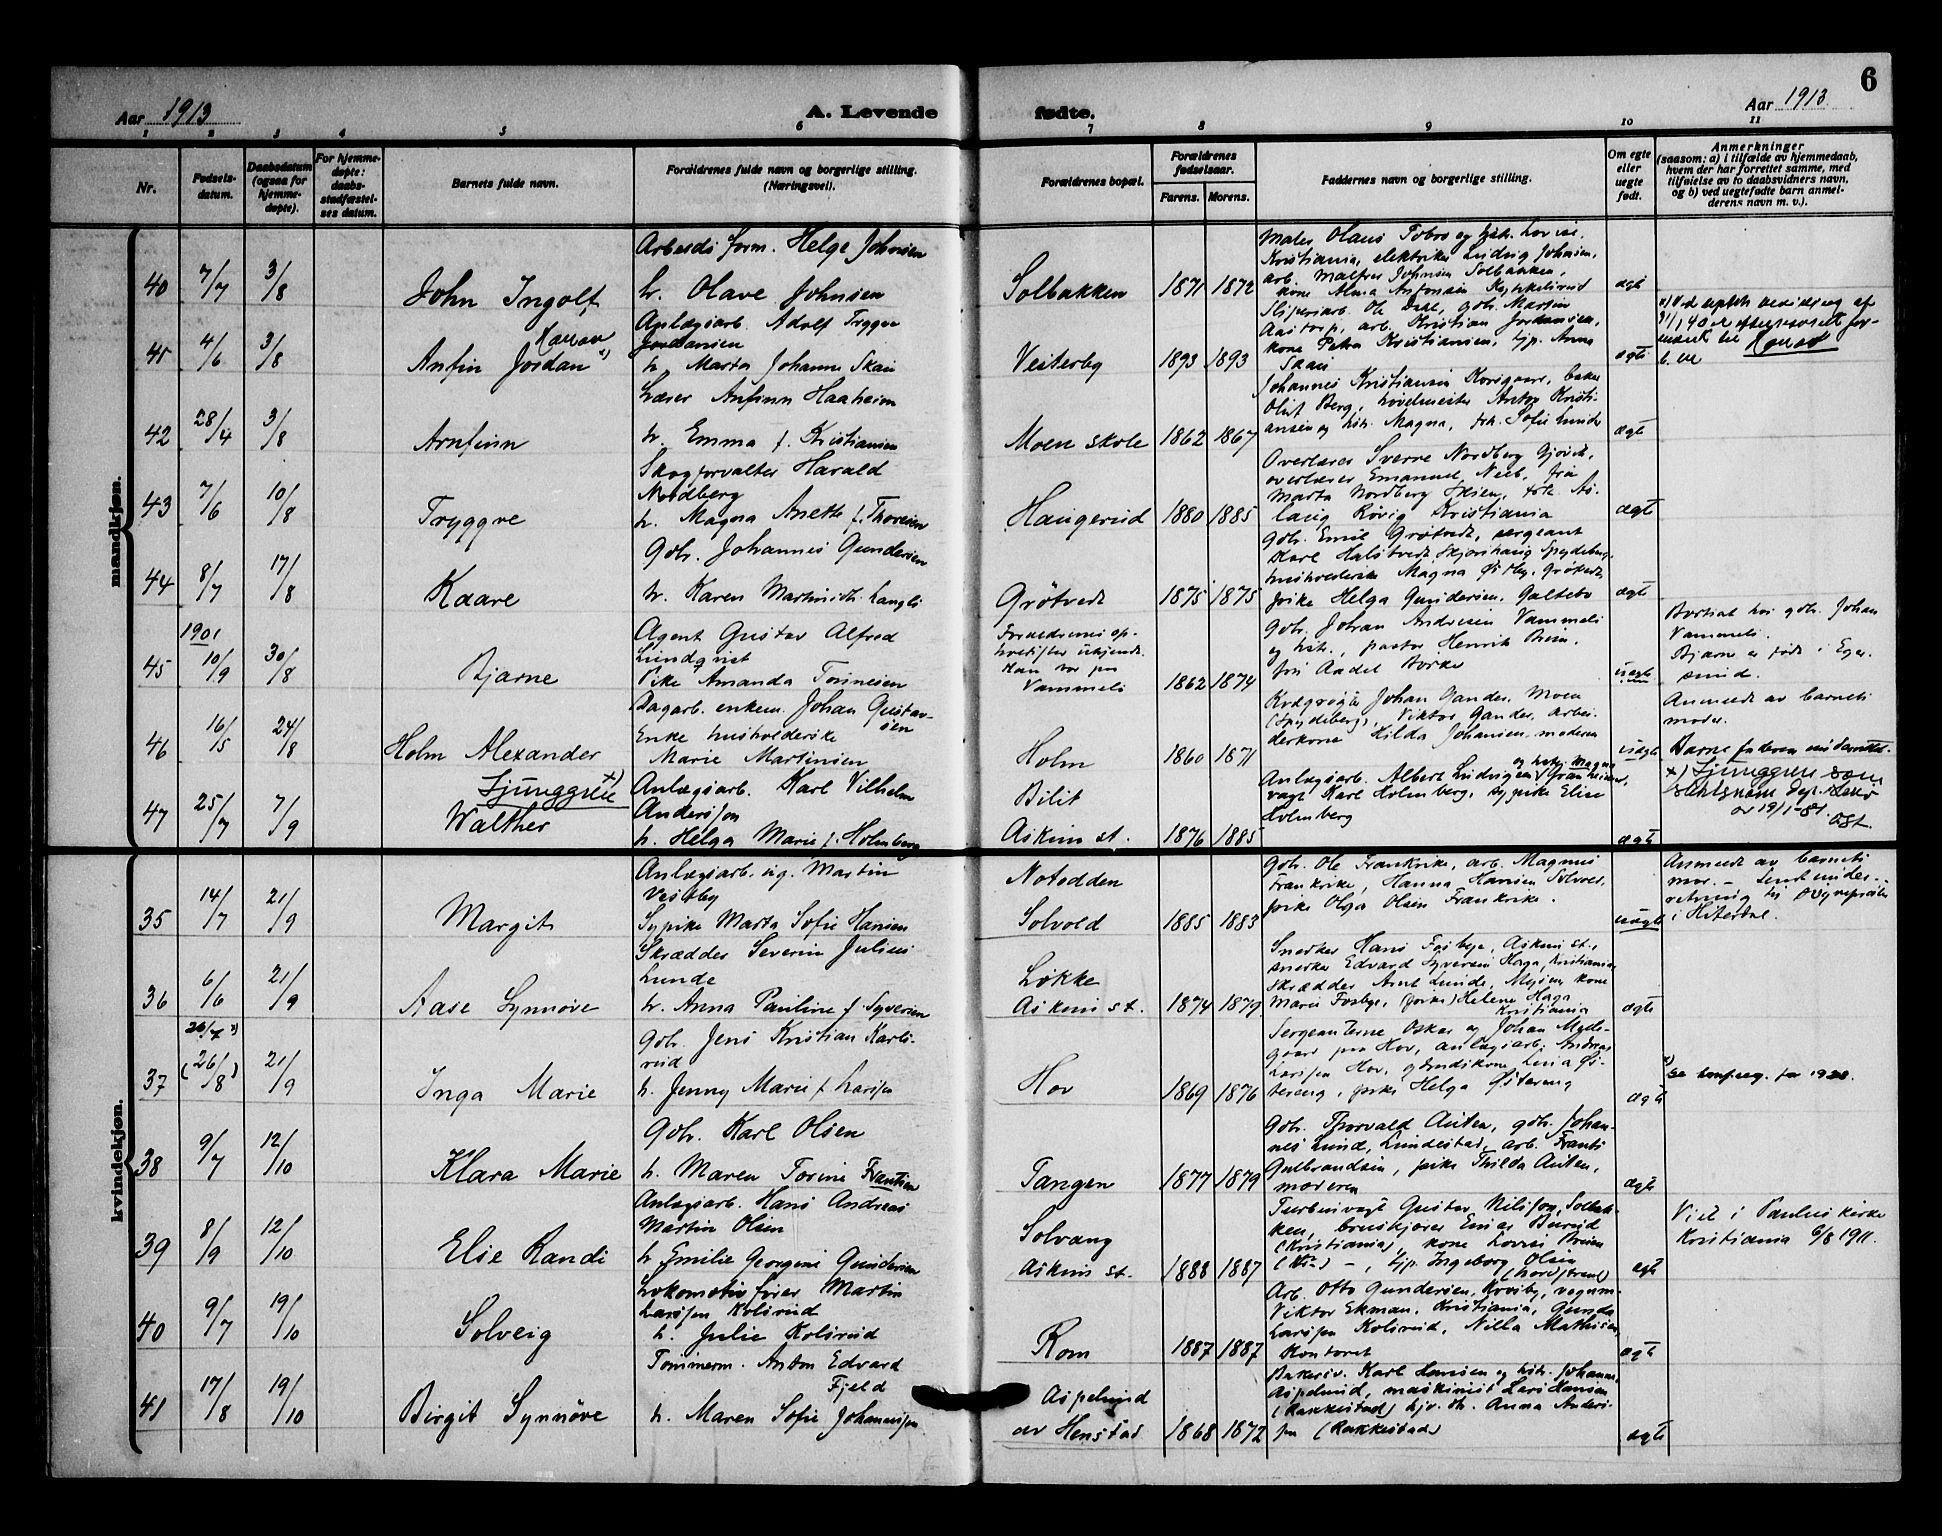 Aar 1913
A. Levende
fødte.
Aar 1913
6
1 2 3 4 5 6 7 8 9 10 11
Nr.
Fødsels-
datum.
Daabsdatum
(ogsaa for
hjemme-
døpte).
For hjemme-
døpte:
daabs-
stadfæstel-
ses datum.
Barnets fulde navn.
Forældrenes fulde navn og borgerlige stilling.
(Næringsvei).
Forældrenes bopæl.
Forældrenes
fødselsaar.
Farens. Morens.
Faddernes navn og borgerlige stilling.
Om egte
eller
uegte
født.
Anmerkninger
(saasom: a) i tilfælde av hjemmedaab,
hvem der har forrettet samme, med
tilføielse av to daabsvidners navn,
og b) ved uegtefødte barn anmel-
derens navn m. v.).
mandkjøn.
40 7/7 3/8
John Ingolf
Arbeids form. Helge Johnsen
h. Olave Johnsen
Solbakken 1871 1872
Maler Olaus Tobro og hstr. Lovise,
Kristiania, elektriker Ludvig Johnsen,
arb. Malfred Johnsen Solbakken,
kone Alma Antonsen
ægte
41 4/6 3/8
Konrad
Anfin Jordan x)
Anlægsarb. Adolf Trygve
Jordansen
h. Marta Johanne Skau
Vesterby 1893 1893
Sliperiarb. Ole Dahl, gdb. Martin
Aastorp, arb. Kristian Jordansen,
kone Petra Kristiansen, tjp. Anna
Skau
ægte
Konrad
42 28/4 3/8
Arnfinn
Lærer Anfinn Haaheim
h. Emma f. Kristiansen
Moen skole 1862 1867
Johannes Kristiansen Korsgaar, baker
Oluf Berg, høvelmester Anton Kristi-
ansen og hstr. Magna, frk. Sofie Lunder
ægte
43 7/6 10/8
Tryggve
Skogforvalter Harald
Nordberg
h. Magna Anette f. Thoresen
Haugerud 1880 1885
Overlærer Sverre Nordberg Gjøvik,
overlærer Emanuel Neeb, fru
Marta Nordberg Skien, frk. As-
laug Røvig Kristiania
ægte
44 8/7 17/8
Kaare
Gdb. Johannes Gundersen
h. Karen Martinsdtr. Langli
Grøtvedt 1875 1875
gdb. Emil Grøtvedt, sergeant
Karl Halstvedt Skjørshaug Spydeberg,
husholderske Magna Østby, Grøtvedt,
pike Helga Gundersen, Galtebo
ægte
45 1901 10/9 30/8
Bjarne
Agent Gustav Alfred
Lundqvist
Pike Amanda Tønnesen
Forældrenes op-
holdssted ukjendt.
Han var paa
Vammeli 1862 1874
gdb. Johan Andresen Vammeli
og hstr., pastor Henrik Breen,
fru Aadel Borke
uægte
Bortsat hos gdb. Johan
Vammeli.
Bjarne er født i Eger-
sund.
46 16/5 24/8
Holm Alexander
Ljunggren x)
Dagarb. enkem. Johan Gustav-
sen
Enke husholderske
Marie Martinsen
Holm 1860 1871
Johan Gander, Moen
(Spydeberg), Viktor Gander, arbei-
derkone Hilda Johansen, moderen
uægte
Anmeldt av barnets
moder.
47 25/7 7/9
Walther
Anlægsarb. Karl Vilhelm
Andersson
h. Helga Marie f. Holmberg
Bilit
Askim st. 1876 1885
Anlægsarb. Albert Ludvigsen
og hstr. Magna
vagt Karl Holmberg, sypike Elise
Holmberg
ægte
x) Ljunggren som
kvindekjøn.
35 14/7 21/9
Margit
Anlægsarb. ug. Martin
Vestby
Sypike Marta Sofie Hansen
Notodden
Solvold 1885 1883
Gdb. Ole Frankrike, arb. Magnus
Frankrike, Hanna Hansen Solvold,
pike Olga Olsen Frankrike.
uægte
Anmeldt av barnets
mor. – Sendt under-
retning til
i Hiterdal.
36 6/6 21/9
Aase Synnøve
Skrædder Severin Julius
Lunde
h. Anna Pauline f. Syversen
Løkke
Askim st. 1874 1879
Snedker Hans Fosbye, Askim st.,
snedker Edvard Syversen Haga, Kristiania,
skrædder Arnt Lunde, Mysen, kone
Marie Fosbye, (pike) Helene Haga
Kristiania
ægte
37 26/7 x) (26/8) 21/9
Inga Marie
Gdb. Jens Kristian Karls-
rud
h. Jenny Marie f. Larssen
Hov 1869 1876
Sergeanterne Oskar og Johan
paa Hov, anlægsarb. Andreas
Larssen Hov, gdmdskone Lina Øs-
tereng, pike Helga Østereng
ægte
x) Se konf.reg. for 1928.
38 9/7 12/10
Klara Marie
Gdb. Karl Olsen
h. Maren Torine Frantsen
Tangen 1877 1879
Gdb. Thorvald Auten, gdb. Johan-
nes Lund, Lundestad, arb. Frants
Gulbrandsen, pike Thilda Auten,
moderen
ægte
39 8/9 12/10
Else Randi
Anlægsarb. Hans Andreas
Martin Olsen
h. Emilie Georgine Gundersen
Solvang
Askim st. 1888 1887
Turbinvagt Gustav Nilsson, Solbak-
ken, bruskjører Einar Burud
(Kristiania), kone Lovise Breien
(Kra.) –, tjp. Ingeborg Olsen
(Nordstrand)
ægte
Viet i Paulus kirke
Kristiania 6/8 1911.
40 9/7 19/10
Solveig
Lokomotivfører Martin
Larssen Kolsrud
h. Julie Kolsrud
Rom 1887 1887
Arb. Otto Gundersen, Kroisby, vognm.
Viktor Ekman, Kristiania, Gunda
Larssen Kolsrud, Nilla Mathisen,
Kontoret
ægte
41 17/8 19/10
Birgit Synnøve
Tømmerm. Anton Edvard
Fjeld
h. Maren Sofie Johannessen
Aspelund
av Henstad 1868 1872
Bakersv. Karl Hansen og hstr. Johanne,
Aspelund, maskinist Lars Hansen
(Rakkestad) gjv. dtr. Anna Anders-
sen (Rakkestad)
ægte